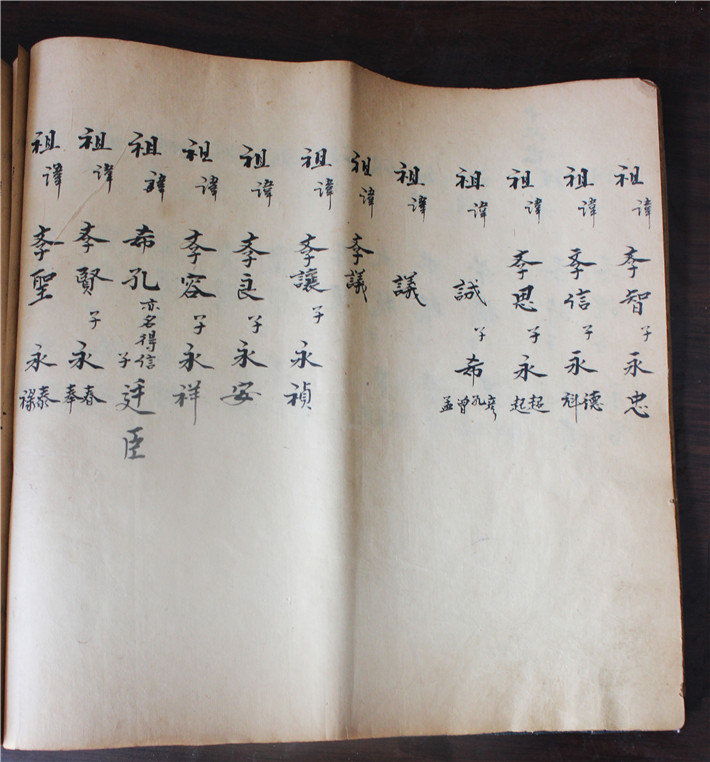 祖諱孝智子永忠
祖諱孝信子永德科
祖諱孝思子永超起
祖諱誠子希彥孔曾孟
祖諱議
祖諱孝議
祖諱孝讓子永禎
祖諱孝良子永安
祖諱孝容子永祥
祖諱希孔亦名得信子廷臣
祖諱孝賢子永春奉
祖諱孝聖永泰祿